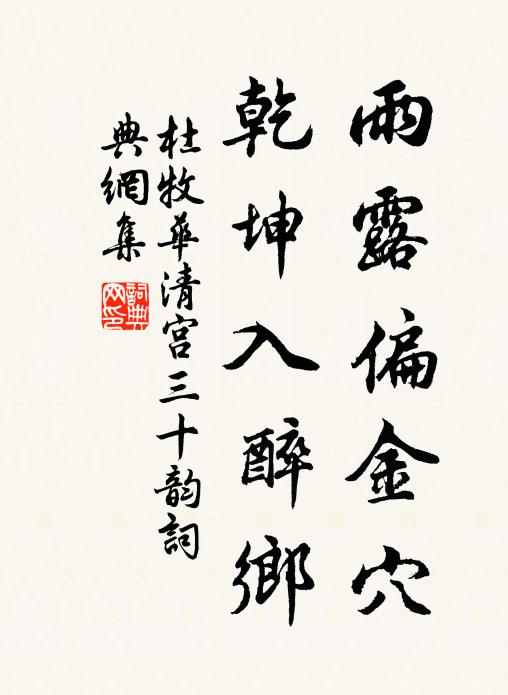 雨露偏金穴
乾坤入醉鄉
杜牧華清宮三十韵詞
典網集
詞典网印